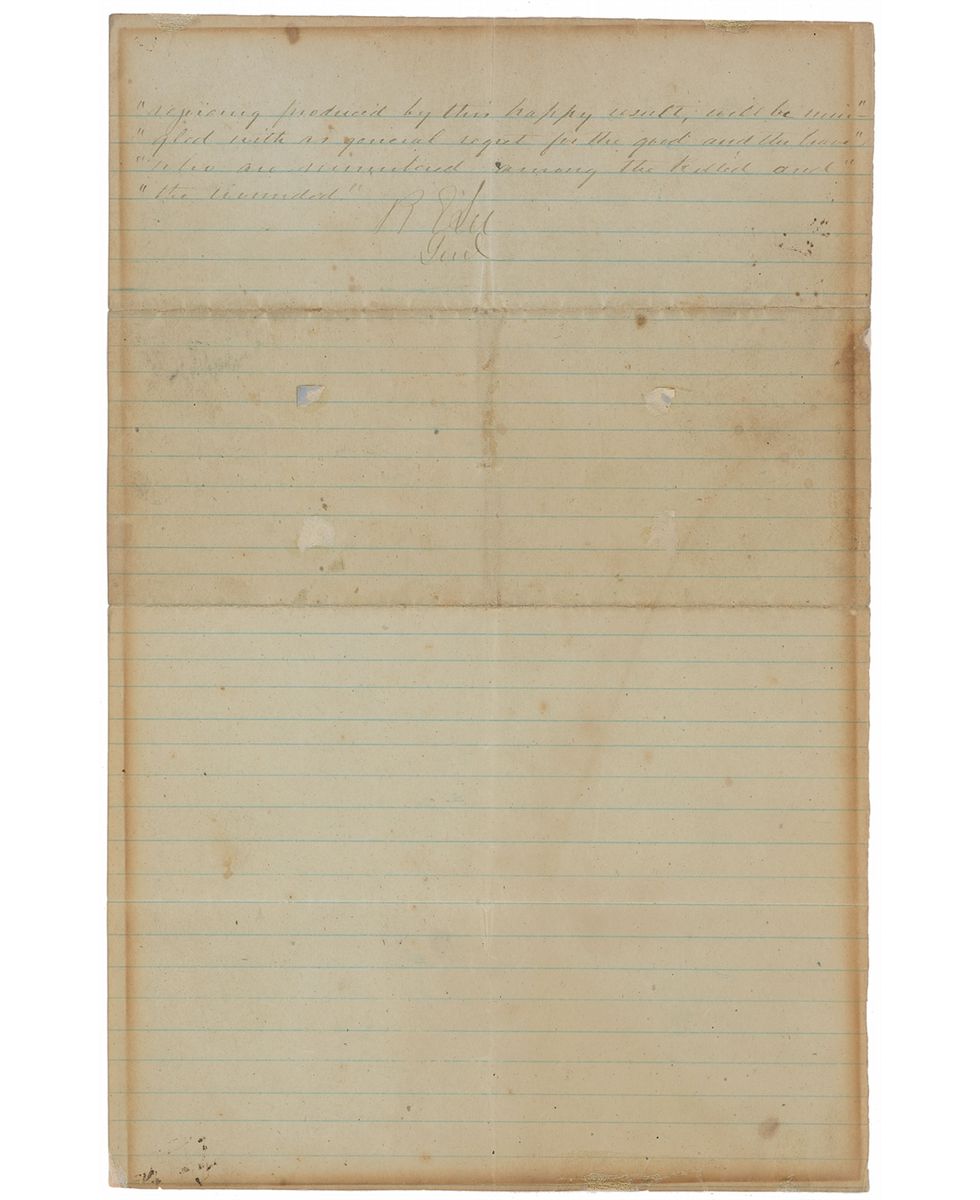 " rejoicing produced by this happy result, will be min- "
" gled with as general regret for the good and the brave "
" who are numbered among the killed and "
" the wounded."
R E Lee
Genl